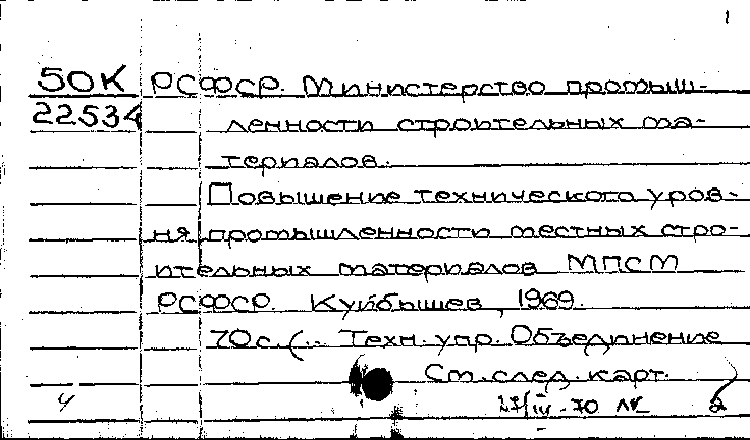 1
50К РСФСР. Министерство промыш-
22534 ленности строительных ма-
териалов.
Повышение технического уров-
ня промышленности местных стро-
ительных материалов МПСМ
РСФСР. Куйбышев, 1969.
70 с. (.. Техн. упр. Объединение
См. след. карт.
4 27/IV-70 2